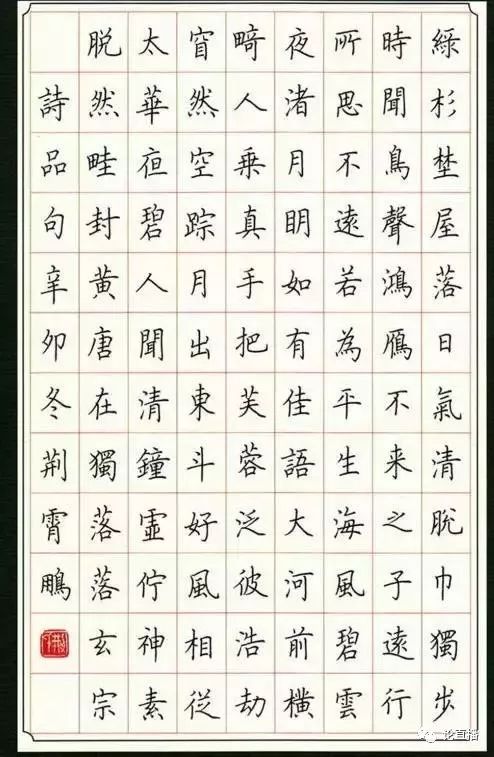 綠杉埜屋落日氣清脱巾獨步
時聞鳥聲鴻鴈不来之子遠行
所思不遠若為平生海風碧雲
夜渚月眀如有佳語大河前橫
畸人乗真手把芙蓉泛彼浩劫
窅然空踪月出東斗好風相從
太華夜碧人聞清鐘虛佇神素
脱然畦封黄唐在獨落落玄宗
詩品句辛卯冬荆霄鵬
论直播